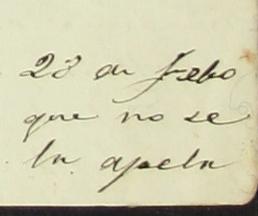 28 de Febo
que no se
la apela